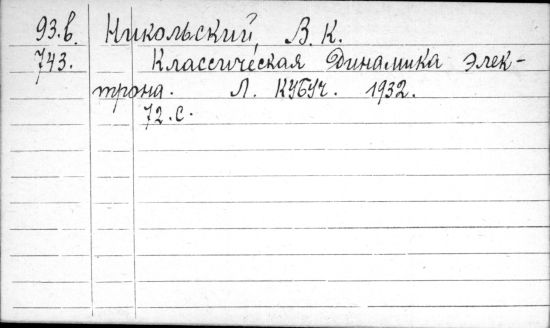 93.в. Никольский В. К.
743. Классическая Динамика элек-
трона. Л. КУБУЧ. 1932.
72.с.